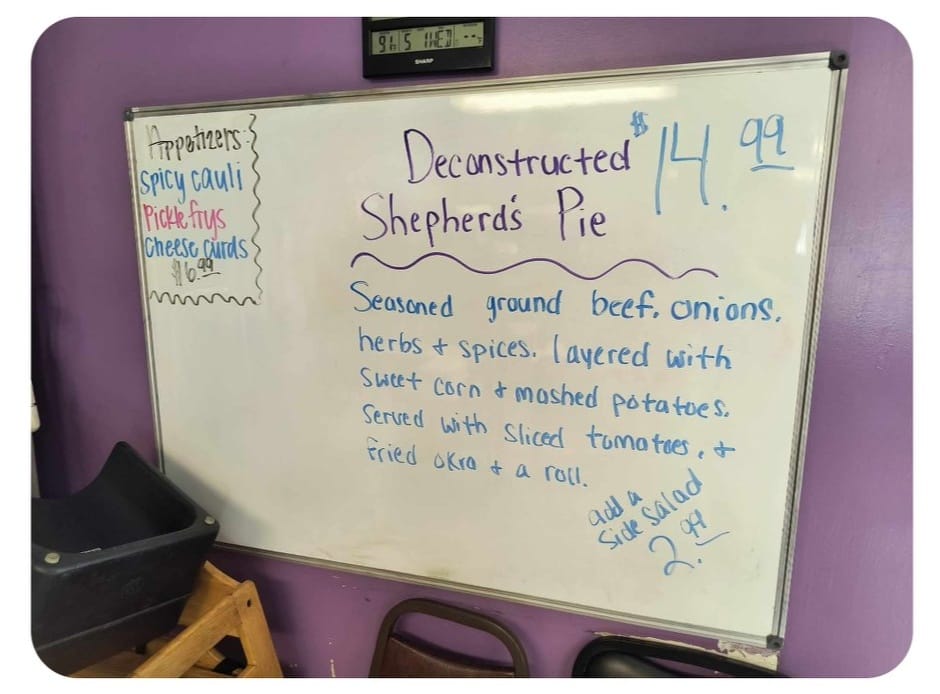 91 5 WED --°F
SHARP
Appetizers:
Spicy cauli
Pickle frys
Cheese curds
$6.99
Deconstructed
Shepherd's Pie
$14.99
Seasoned ground beef, onions,
herbs + spices. layered with
sweet corn + mashed potatoes.
Served with sliced tomatoes, +
fried okra + a roll.
add a
side salad
2.99